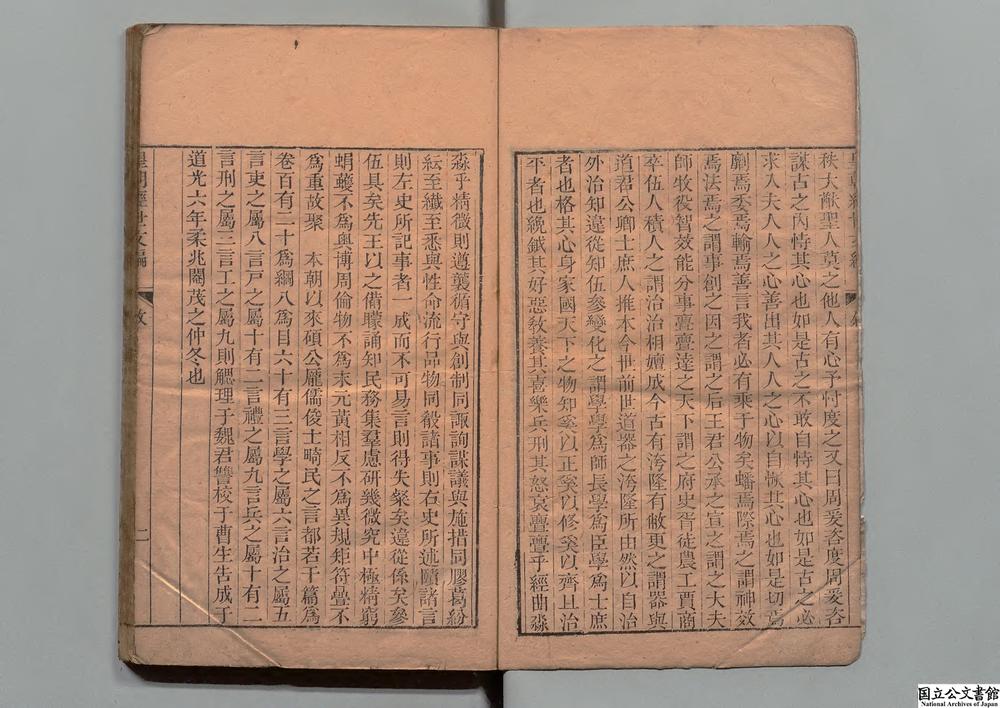 秩大猷聖人莫之他人有心予忖度之又曰周爰咨度周爰咨
謀古之㐫恃其心也如是古之不敢自恃其心也如是古之必
求人夫人人之心善出其人人之心以自恢其心也如是切焉
劘焉委焉輸焉善言我者必有乘于物矣蟠焉際焉之謂神效
焉法焉之謂事創之因之謂之后王君公承之宣之謂之大夫
師牧役智效能分事亹亹達之天下謂之府史胥徒農工賈商
卒伍人積人之謂治治相嬗成今古有洿隆有敝更之謂器與
道君公卿士庶人推本今世前世道器之洿隆所由然以自治
外治知違從知伍參變化之謂學學為師長學為臣學為士庶
者也格其心身家國天下之物知奚以正奚以修奚以齊且治
平者也繞鉞其好惡敎養其喜樂兵刑其怒哀亹亹乎經曲淼
淼乎精微則遵襲循守與創制同諏詢謀議與施措同膠葛紛
紜至纖至悉與性命流行品物同殽諸事則右史所述賾諸言
則左史所記事者一成而不可易言則得失粲矣違從係矣參
伍具矣先王以之備矇誦知民務集羣慮研幾微究中極精窮
蜎蠖不為奥博周倫物不為末元黃相反不為異規矩符疊不
為重故聚　本朝以來碩公龎儒俊士畸民之言都若干篇為
卷百有二十為綱八為目六十有三言學之屬六言治之屬五
言吏之屬八言戸之屬十有二言禮之屬九言兵之屬十有二
言刑之屬三言工之屬九則鰓理于魏君讐校于曹生吿成于
道光六年柔兆閹茂之仲冬也
皇朝經世文編
敘
二
国立公文書館
National Archives of Japan